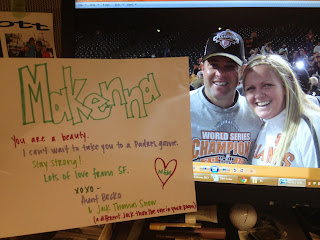 ott
Makenna
You are a beauty.
I can't want to take you to a Padres game.
Stay strong!
Lots of love from SF.
xoxo-
Aunt Becko
& Jack Thomas Snow
(a different Jack than the one in your poem)
WORLD SERIES
CHAMPION